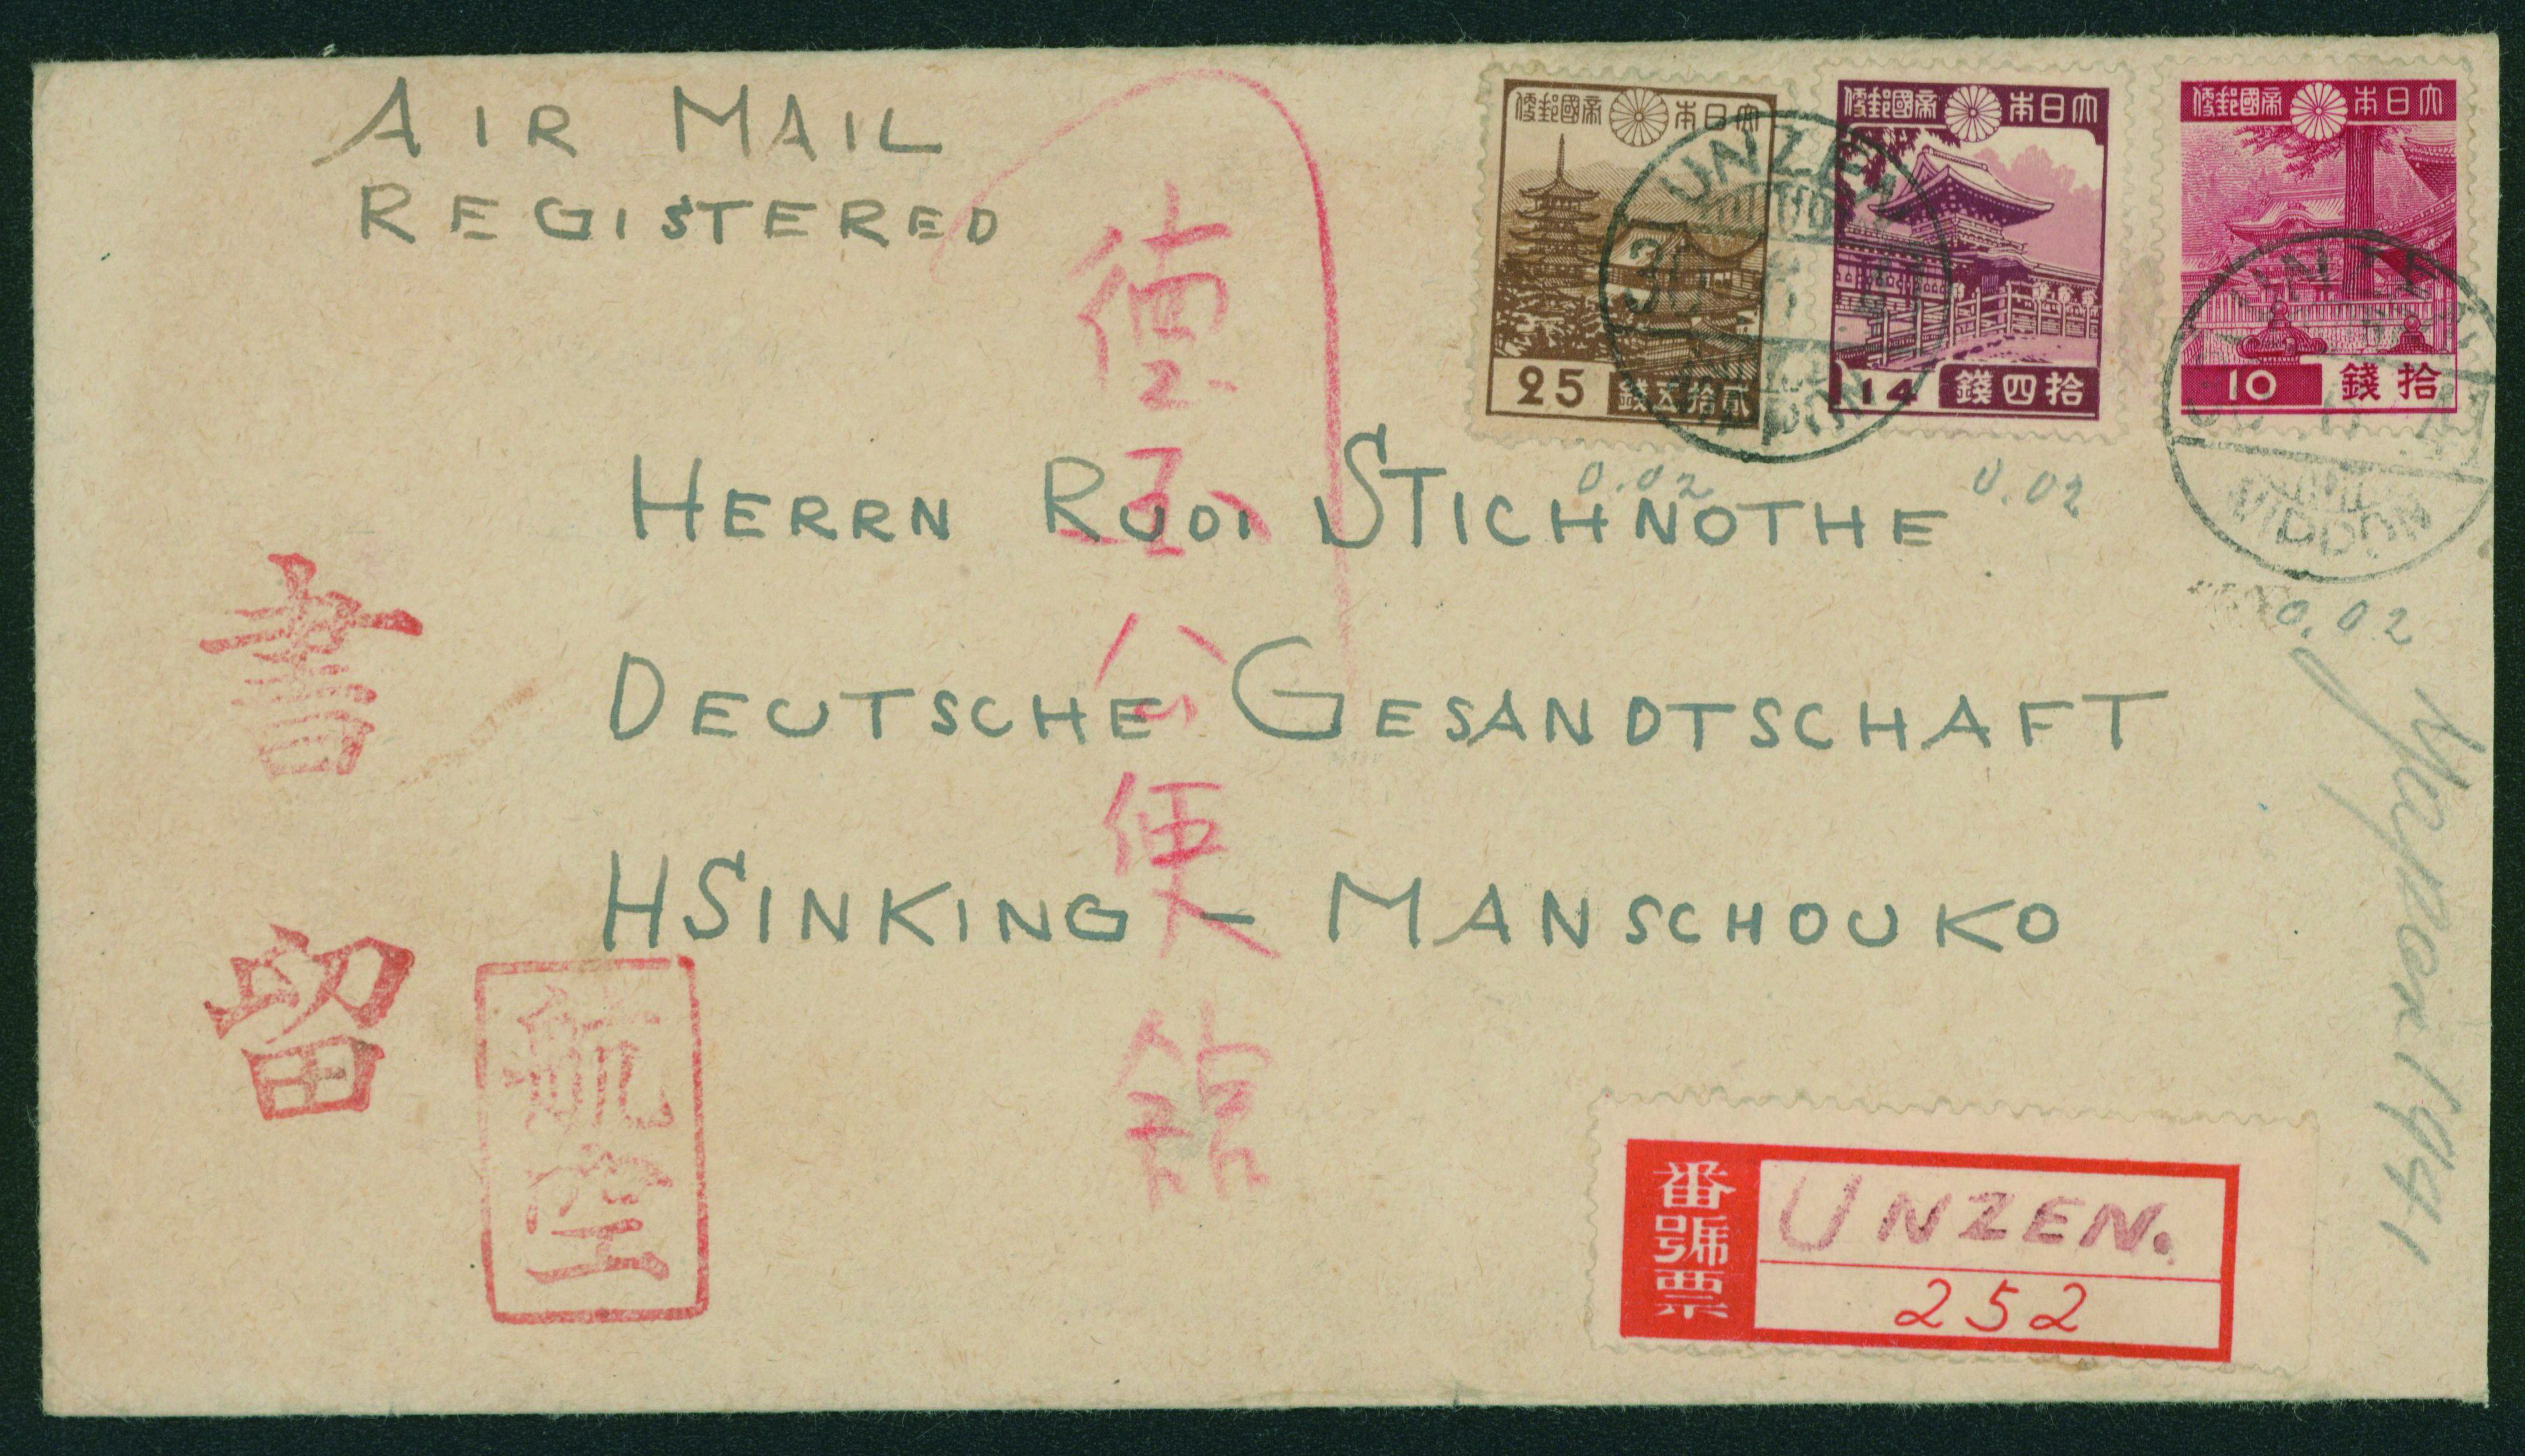 AIR MAIL
REGISTERED
便郵國帝 本日大
25 錢五拾貳
便郵國帝 本日大
14 錢四拾
便郵國帝 本日大
10 錢拾
UNZEN
NIPPON
UNZEN
NIPPON
0.02
0.02
0.02
HERRN RUDI STICHNOTHE
DEUTSCHE GESANDTSCHAFT
HSINKING - MANSCHOUKO
公使館
書留
航空
1941
番號票
UNZEN.
252